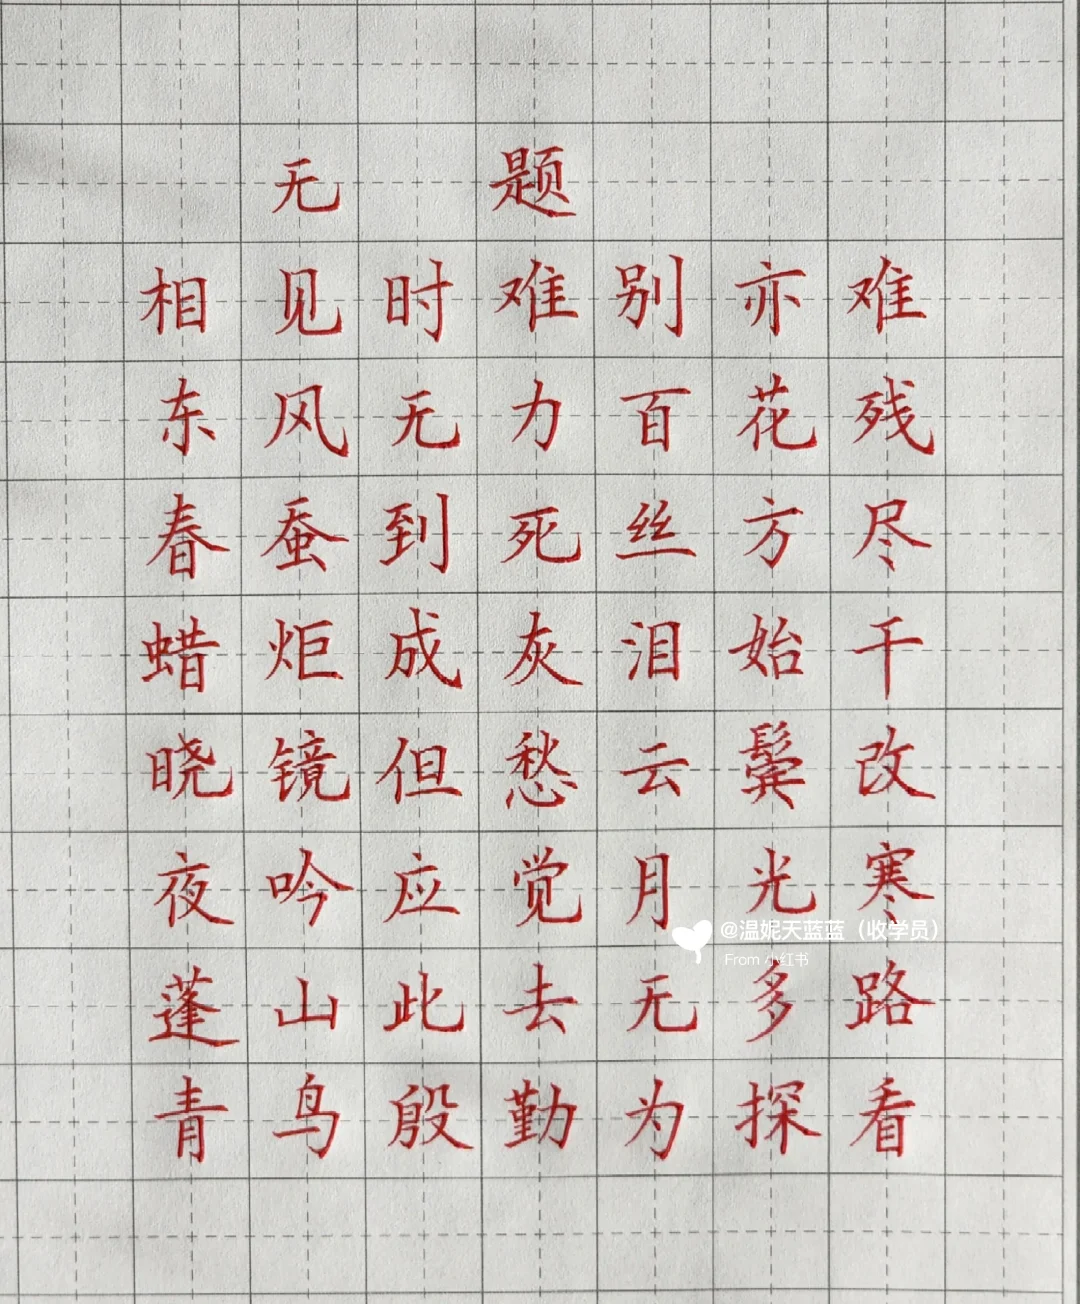 无题
相见时难别亦难
东风无力百花残
春蚕到死丝方尽
蜡炬成灰泪始干
晓镜但愁云鬓改
夜吟应觉月光寒
蓬山此去无多路
青鸟殷勤为探看
@温妮天蓝蓝（收学员）
From 小红书